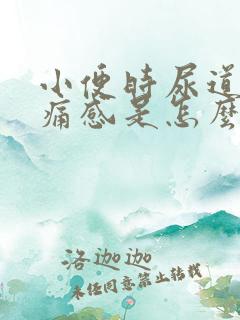 小便时尿道
痛感是怎么
洛迦迦
未经同意禁止转载